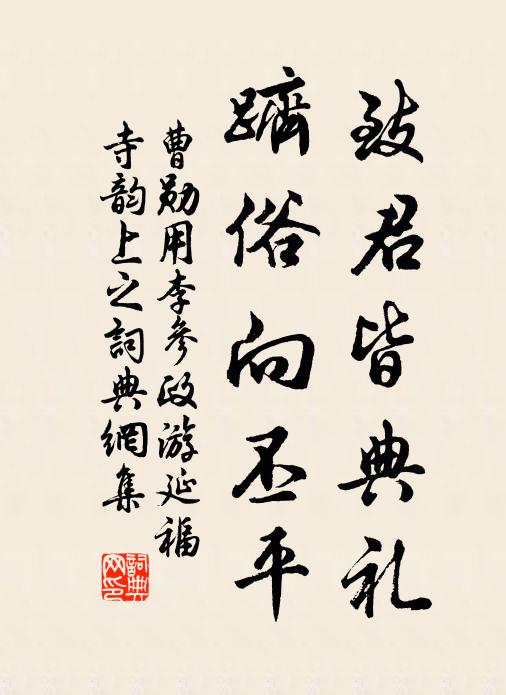 致君皆典礼
跻俗向丕平
曹勋用李参政游延福
寺韵上之詞典網集
詞典
网印